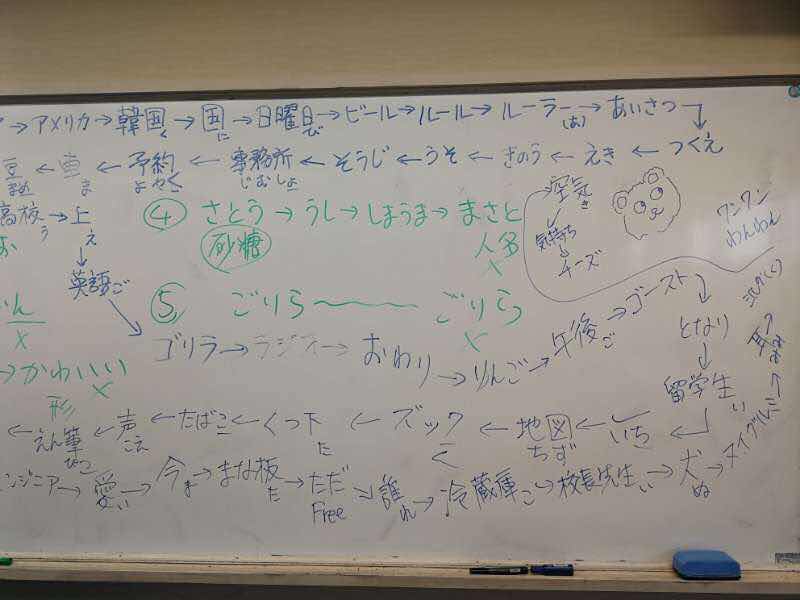 →アメリカ→韓国く→国に→日曜日び→ビール→ルール→ルーラー(あ)→あいさつ
豆 ← 車ま ← 予約よやく ← 事務所じむしょ ← そうじ ← うそ ← きのう ← えき ← つくえ
高校う → 上え
④ さとう → うし → しまうま → まさと
砂糖
人名
×
空気き
気持ち
チーズ
ワンワン
わんわん
英語ご
⑤ ごりら 〜 ごりら
×
ゴリラ → ラジオ → おわり → りんご → 午後ご → ゴースト → となり
×
→かわいい
×
形
留学生い
← えん筆ぴつ ← 声こえ ← たばこ ← くつ下た ← ズック く ← 地図ちず ← いち ←
ンジニア → 愛い → 今ま → まな板た → ただ → 誰れ → 冷蔵庫こ → 校長先生い → 犬ぬ → ヌイグルミ → 耳みみ → ミルク(く)
Free